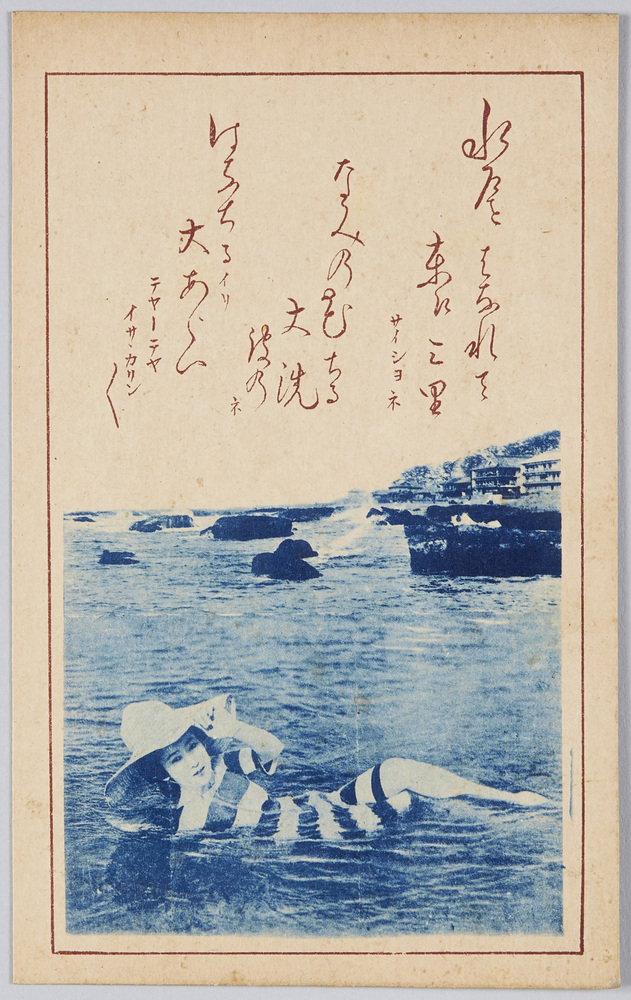 水戸を はなれて
東 三里
サイシヨ ネ
なみの花ちる
大洗
波の ネ
はなちる イソ
大あらい
テヤーテヤ
イサヽカリン〱